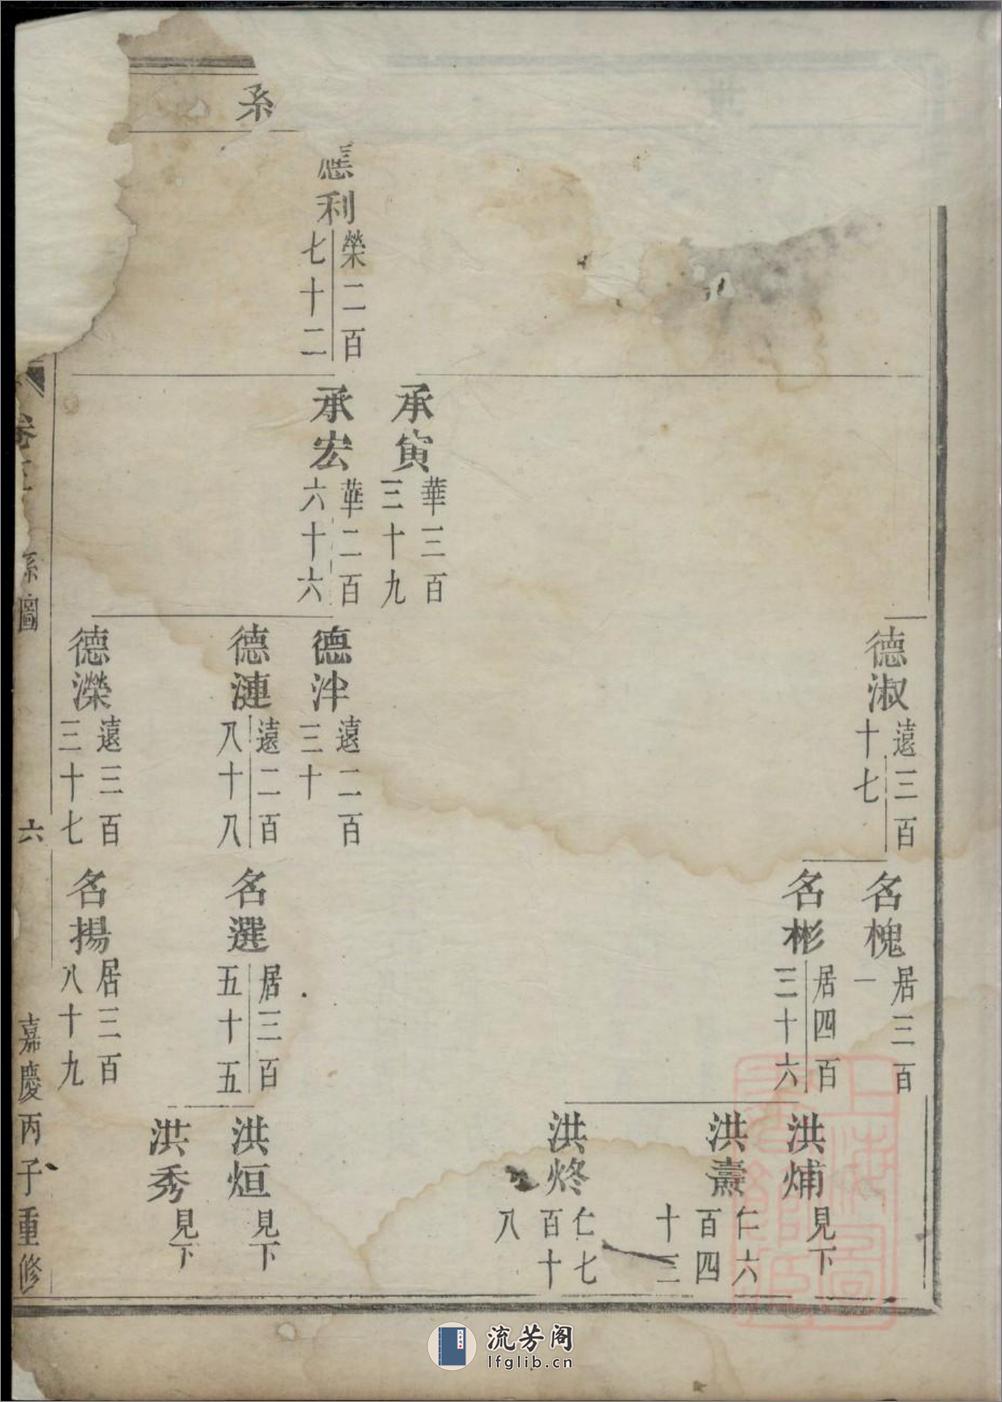 系
應利
榮二百
七十二
承寅
華三百
三十九
承宏
華二百
六十六
德淑
遠三百
十七
德沖
遠二百
三十
德漣
遠二百
八十八
德濴
遠三百
三十七
名槐
居三百
一
名彬
居四百
三十六
名選
居三百
五十五
名揚
居三百
八十九
洪
見下
洪燾
仁六
百四
十三
洪炵
仁七
百十
八
洪烜
見下
洪秀
見下
卷
系圖
六
嘉慶丙子重修
上海圖
流芳阁
lfglib.cn